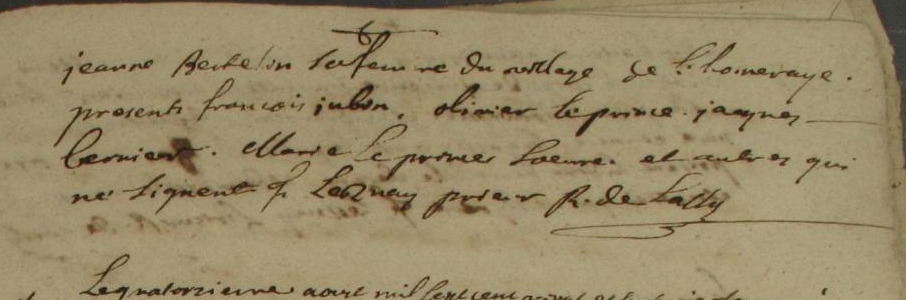 jeanne Bertelin sa femme du village de l'homeraye.
presents françois jubin, olivier leprince. jacques
bernier. Marie le prince et autres qui
ne signent prieur R. de Lally
Lequatorzieme aout mil sept cent